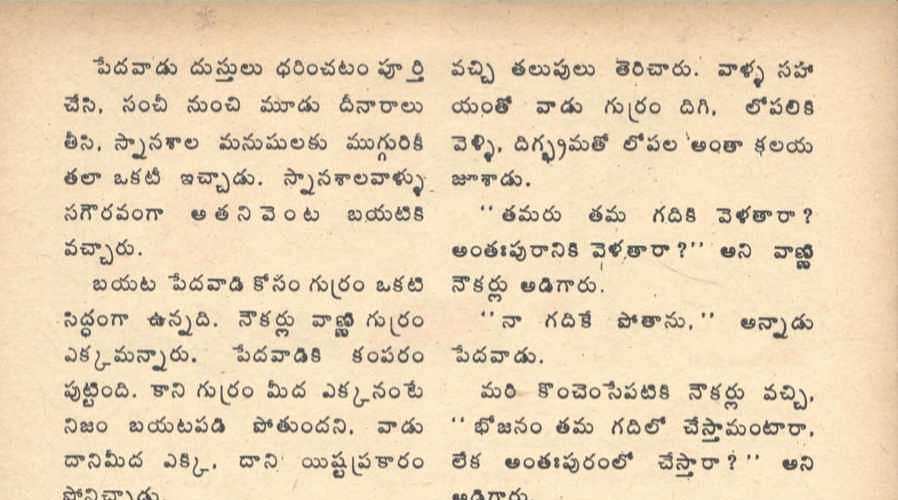 పేదవాడు దుస్తులు ధరించటం పూర్తి
చేసి, సంచీ నుంచి మూడు దీనారాలు
తీసి, స్నానశాల మనుషులకు ముగ్గురికీ
తలా ఒకటి ఇచ్చాడు. స్నానశాలవాళ్ళు
సగౌరవంగా అతనివెంట బయటికి
వచ్చారు.
బయట పేదవాడి కోసం గుర్రం ఒకటి
సిద్ధంగా ఉన్నది. నౌకర్లు వాణ్ణి గుర్రం
ఎక్కమన్నారు. పేదవాడికి కంపరం
పుట్టింది. కాని గుర్రం మీద ఎక్కనంటే
నిజం బయటపడి పోతుందని, వాడు
దానిమీద ఎక్కి, దాని యిష్టప్రకారం
పోనిచ్చాడు.
వచ్చి తలుపులు తెరిచారు. వాళ్ళ సహా
యంతో వాడు గుర్రం దిగి, లోపలికి
వెళ్ళి, దిగ్భ్రమతో లోపల అంతా కలయ
జూశాడు.
‘‘తమరు తమ గదికి వెళతారా?
అంతఃపురానికి వెళతారా?’’ అని వాణ్ణి
నౌకర్లు అడిగారు.
‘‘నా గదికే పోతాను,’’ అన్నాడు
పేదవాడు.
మరి కొంచెంసేపటికి నౌకర్లు వచ్చి,
‘‘భోజనం తమ గదిలో చేస్తామంటారా,
లేక అంతఃపురంలో చేస్తారా?’’ అని
అడిగారు.